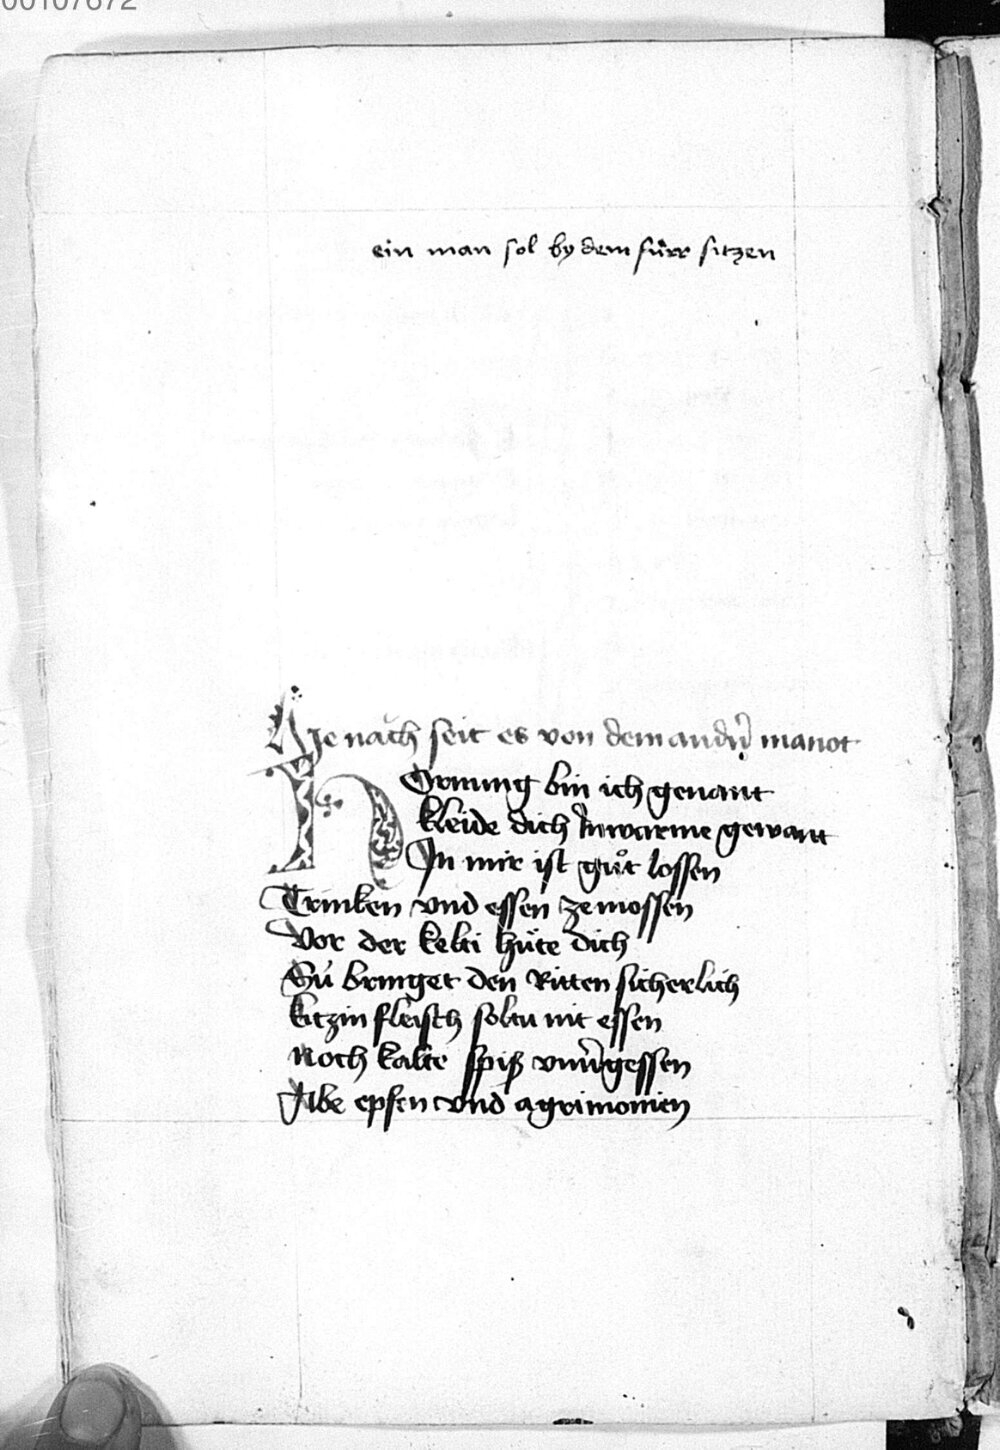 00107672
ein man sol by dem fürr sitzen
Hje nach seit es von dem andr̄ manot
Hornung bin ich genant
kleide dich Jn warme gewant
Jn mir ist guͦt lossen
Trinken vnd essen ze mossen
Vor der kelti hüte dich
Sú bringet den Ritten sicherlich
kitzin fleisch soltu nit essen
Noch kalte spiß vnu͛gessen
Abe epfen vnd agrimonien